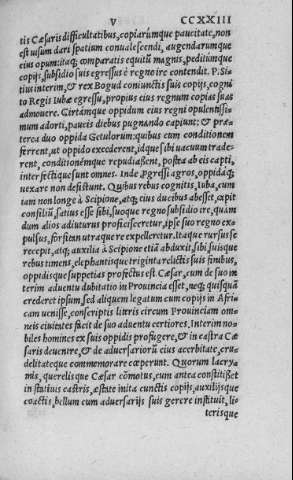 V CCXXIII
tis Cæsaris difficultatibus, copiarumque paucitate, non
est uisum dari spatium conualescendi, augendarumque
eius opum: itaq; comparatis equitũ magnis, peditiumque
copijs, subsidio suis egressus è regno ire contendit. P. Si-
tius interim, & rex Bogud coniunctis suis copijs, cogni
to Regis Iubæ egressu, propius eius regnum copias suas
admouere. Cirtámque oppidum eius regni opulentissi-
mum adorti, paucis diebus pugnando capiunt: & præ
terea duo oppida Getulorum: quibus cum conditionem
ferrent, ut oppido excederent, idque sibi uacuum trade-
rent, conditionémque repudiassent, postea ab eis capti,
interfectique sunt omnes. Inde Pgressi agros, oppidáq;
uexare non desistunt. Quibus rebus cognitis, Iuba, cum
tam non longe à Scipione, atq; eius ducibus abesset, cœpit
consiliũ, satius esse sibi, suoque regno subsidio ire, quàm
dum alios adiuturus proficisceretur, ipse suo regno ex-
pulsus, forsitan utraque re expelleretur. Itaque rursus se
recepit, atq; auxilia à Scipione etiã abduxit, sibi suisque
rebus timens, elephantisque triginta relictis suis finibus,
oppidisque suppetias profectus est Cæsar, cum de suo in
terim aduentu dubitatio in Prouincia esset, neq; quisquã
crederet ipsum, sed aliquem legatum cum copijs in Afri
cam uenisse, conscriptis litteris circum Prouinciam om-
neis ciuitates facit de suo aduentu certiores. Interim no-
biles homines ex suis oppidis profugere, & in castra Cæ
saris deuenire, & de aduersariorũ eius acerbitate, cru-
delitateque commemorare cœperunt. Quorum lacry
mis, querelisque Cæsar cõmotus, cum antea constitisset
in statiuis castris, æstate inita cunctis copijs, auxilijsque
coactis, bellum cum aduersarijs suis gerere instituit, li-
terisque